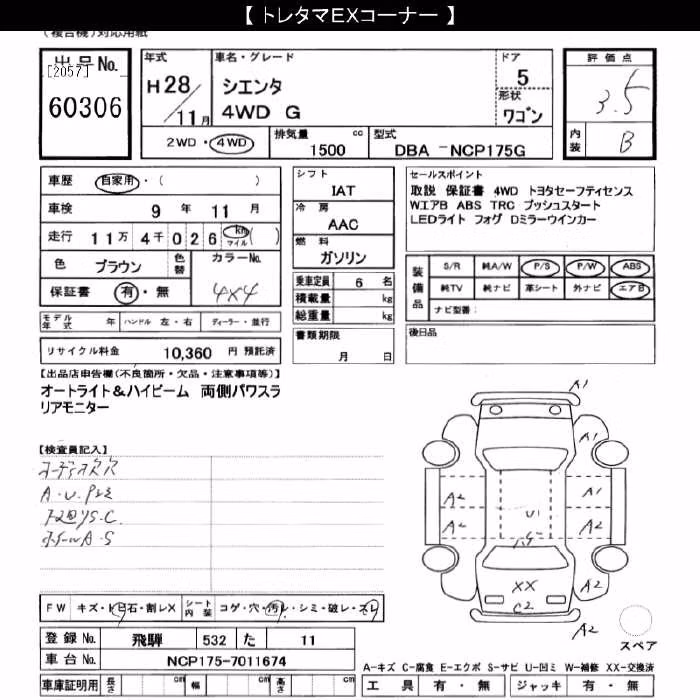 【 トレタマEXコーナー 】
(複合機)対応用紙
出品No.
[2057]
60306
年式
H28/11月
車名・グレード
シエンタ
4WD G
ドア
5
形状
ワゴン
評価点
3.5
内装
B
2WD・4WD
排気量
1500 cc
型式
DBA －NCP175G
車歴 自家用・( )
車検 9 年 11 月
走行 11万 4千 026 km マイル ( )
色 ブラウン 色替
カラーNo.
4X4
保証書 有・無
モデル年式 年 ハンドル 左・右 ディーラー・並行
リサイクル料金 10,360 円 預託済
シフト
IAT
冷房
AAC
燃料
ガソリン
乗車定員 6 名
積載量 kg
総重量 kg
書類期限
月 日
セールスポイント
取説 保証書 4WD トヨタセーフティセンス
WエアB ABS TRC プッシュスタート
LEDライト フォグ Dミラーウインカー
装備品
S/R 純A/W P/S P/W ABS
純TV 純ナビ 革シート 外ナビ エアB
ナビ型番:
後日品
【出品店申告欄(不良箇所・欠品・注意事項等)】
オートライト＆ハイビーム 両側パワスラ
リアモニター
【検査員記入】
A・U・Pミミ
A1
A1
A2 A1
A2 U1 A2
XX A2
C2
A2
スペア
FW キズ・ヒ石・割レX シート内装 コゲ・穴・汚レ・シミ・破レ・スレ
登録No. 飛騨 532 た 11
車台No. NCP175-7011674
車庫証明用 長さ cm 幅 cm 高さ cm
A-キズ C-腐食 E-エクボ S-サビ U-凹ミ W-補修 XX-交換済
工具 有・無 ジャッキ 有・無